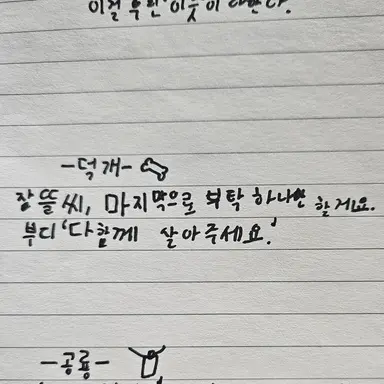 -덕개-
잠뜰씨, 마지막으로 부탁 하나만 할게요.
부디 '다함께 살아주세요.'
-공룡-